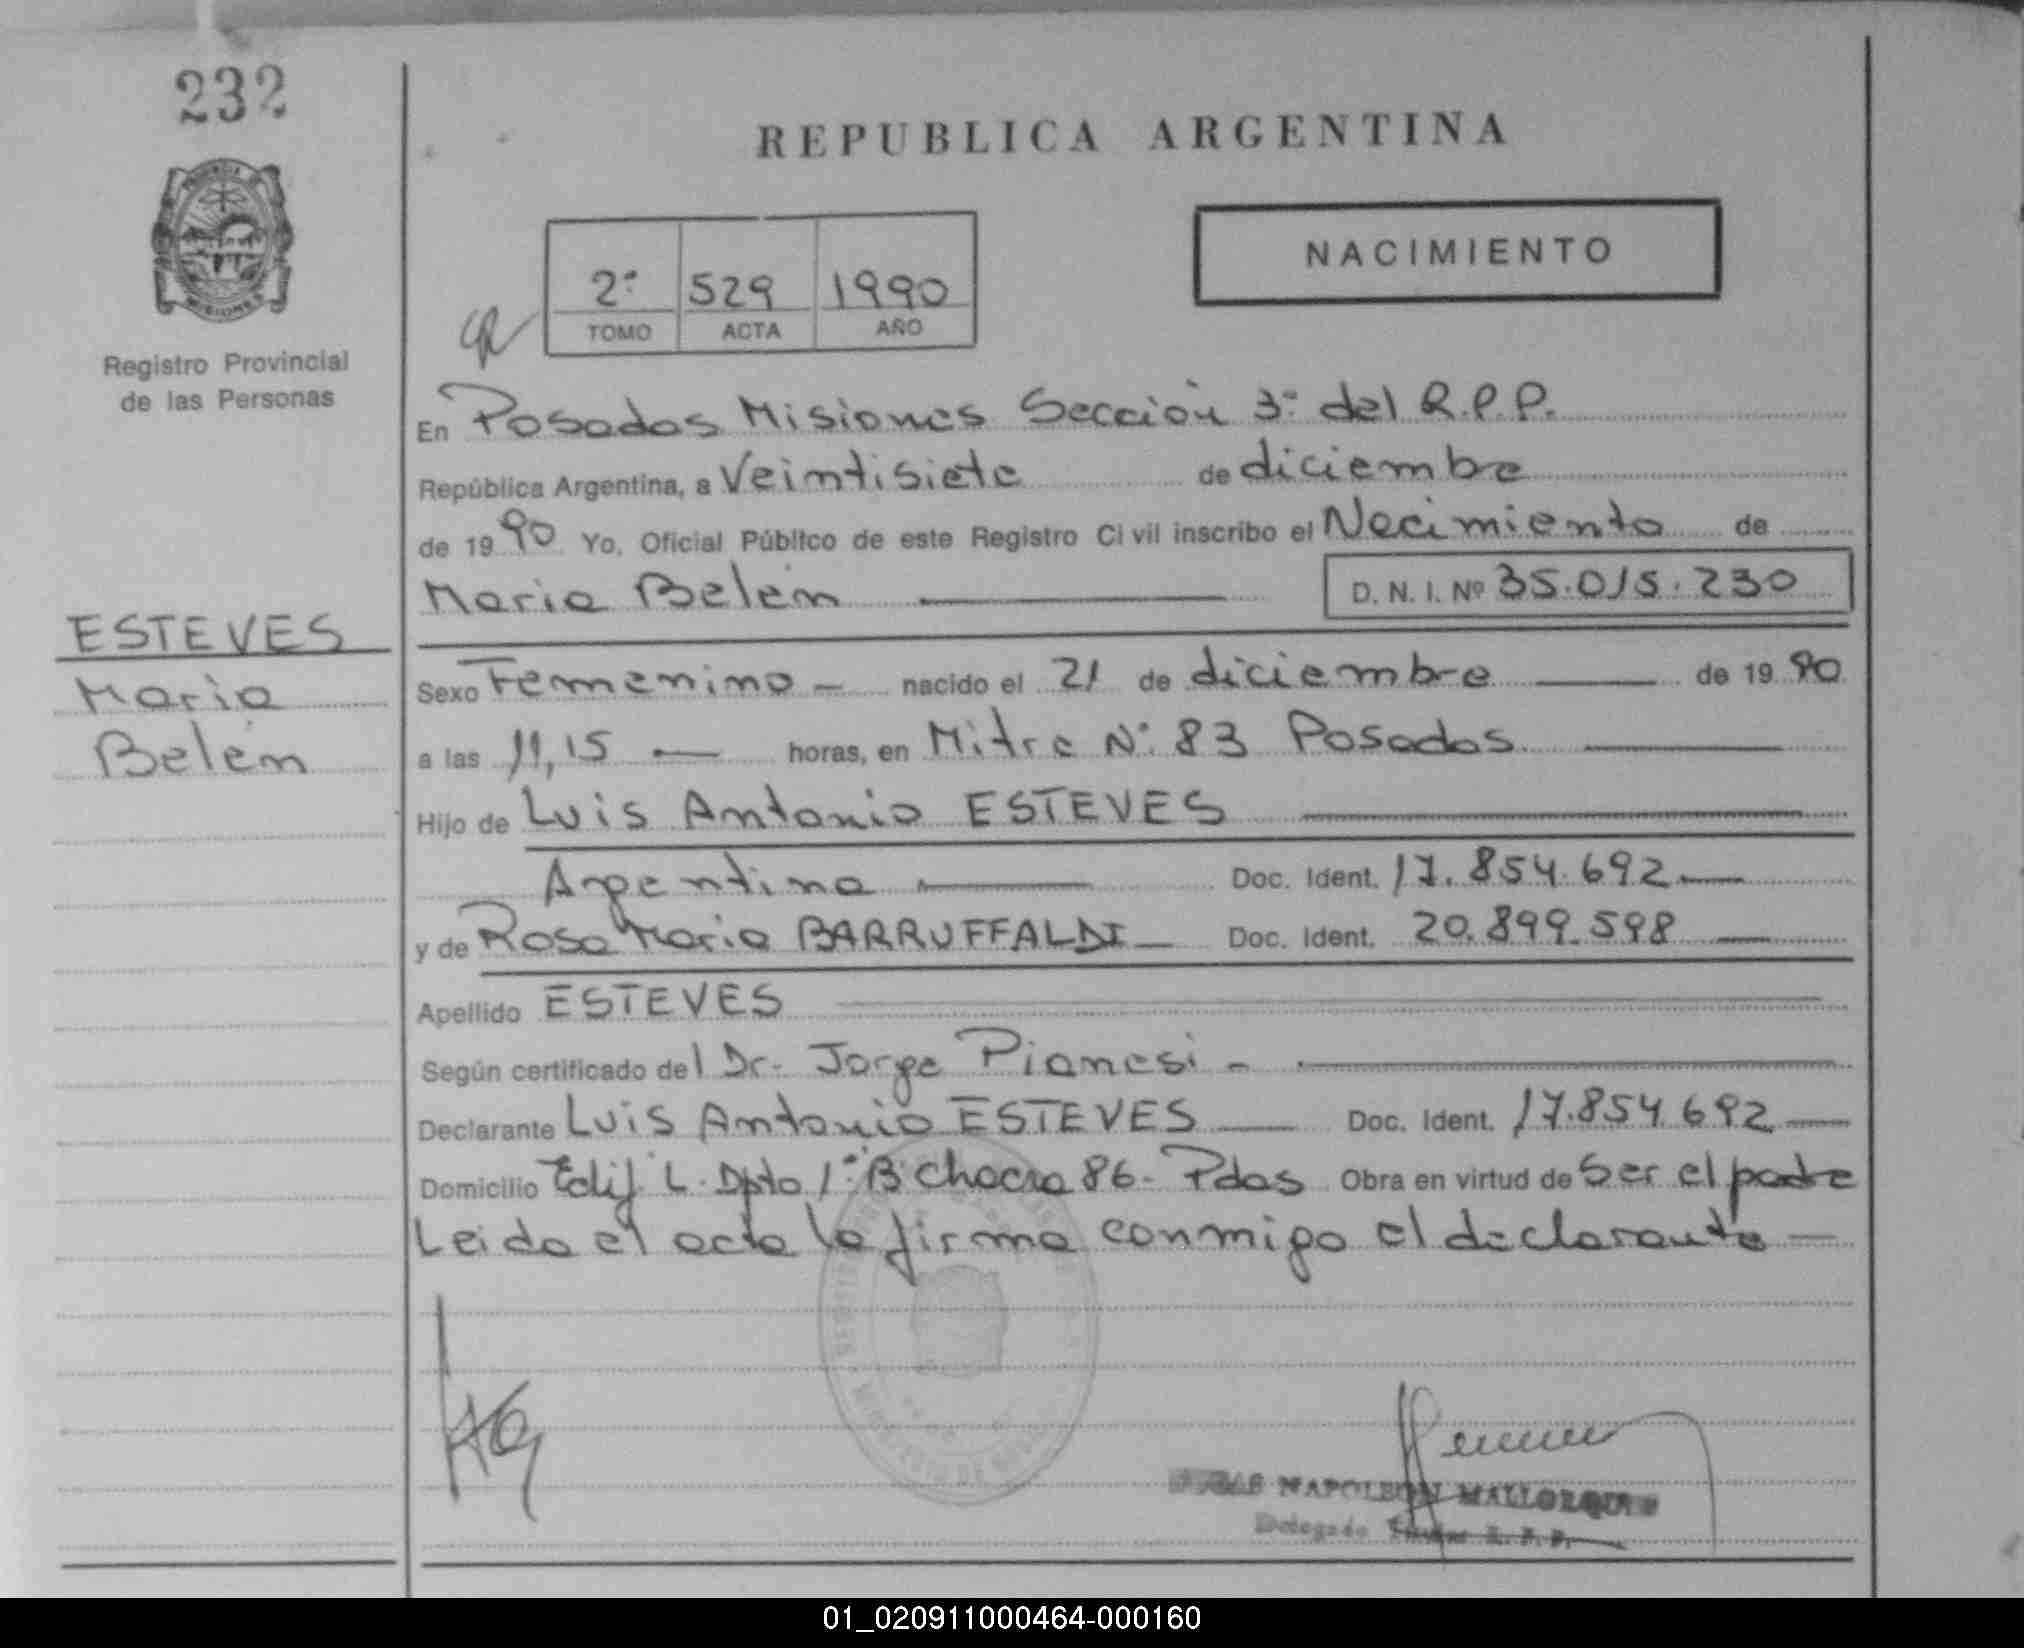 232
REPUBLICA ARGENTINA
NACIMIENTO
2º 529 1990
TOMO ACTA AÑO
Registro Provincial
de las Personas
En Posadas Misiones Sección 3º del R.P.P.
República Argentina, a Veintisiete de diciembre
de 1990 Yo, Oficial Público de este Registro Civil inscribo el Nacimiento de
Maria Belén D. N. I. Nº 35.015.230
ESTEVES
Maria
Belén
Sexo Femenino - nacido el 21 de diciembre de 1990
a las 11,15 horas, en Mitre Nº 83 Posadas
Hijo de Luis Antonio ESTEVES
Argentina Doc. Ident. 17.854.692
y de Rosa Maria BARRUFFALDI Doc. Ident. 20.899.598
Apellido ESTEVES
Según certificado del Dr. Jorge Pianesi -
Declarante Luis Antonio ESTEVES Doc. Ident. 17.854.692
Domicilio Edif. L. Dpto 1º B Chacra 86 - Pdas Obra en virtud de Ser el padre
Leida el acta la firma conmigo el declarante
NAPOLEON MALLORQUIN
Delegado Titular R. P. P.
MISIONES
01_020911000464-000160